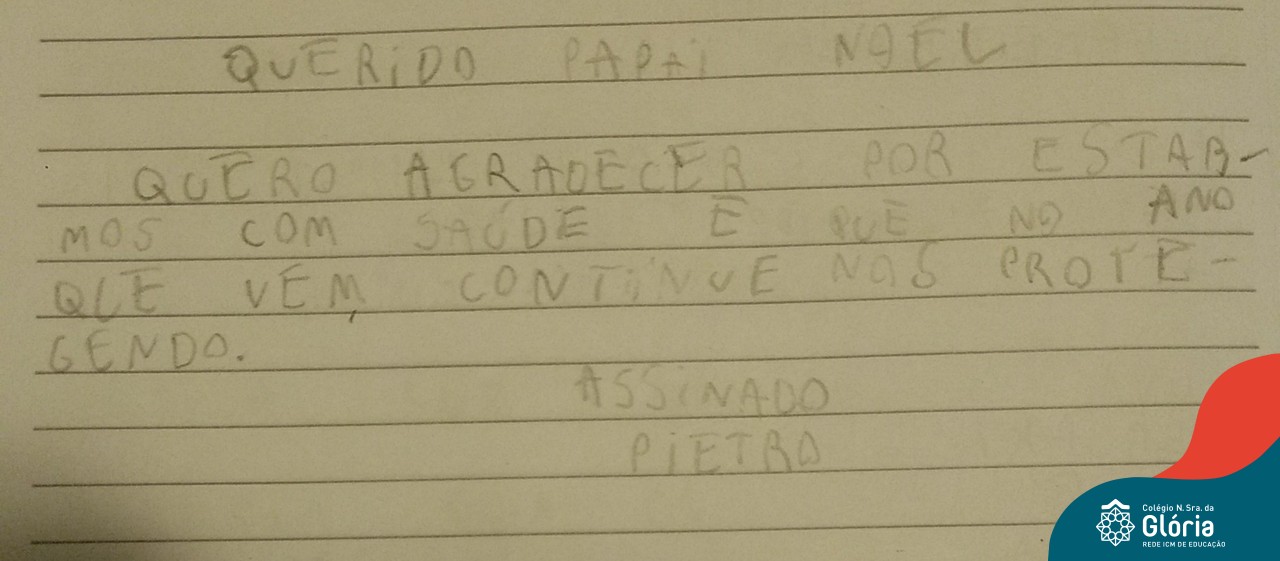 QUERIDO PAPAI NOEL
QUERO AGRADECER POR ESTAR-
MOS COM SAÚDE E QUE NO ANO
QUE VEM, CONTINUE NOS PROTE-
GENDO.
ASSINADO
PIETRO
Colégio N. Sra. da
Glória
REDE ICM DE EDUCAÇÃO